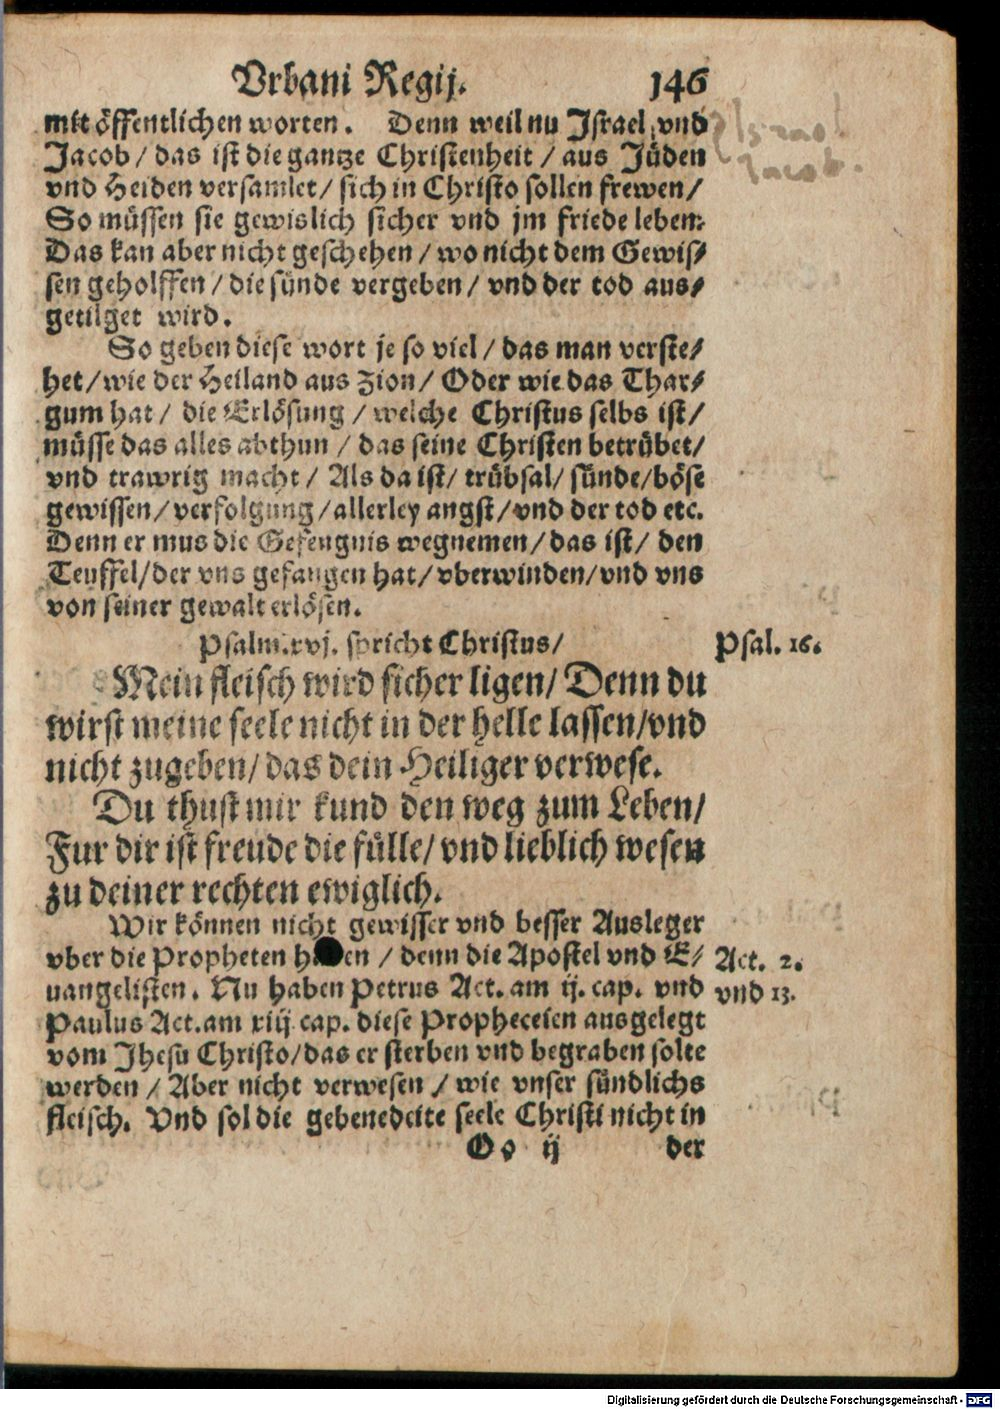 Vrbani Regij. 146
mit öffentlichen worten. Denn weil nu Israel vnd
Jacob / das ist die gantze Christenheit / aus Jüden
vnd Heiden versamlet / sich in Christo sollen frewen /
So müssen sie gewislich sicher vnd jm friede leben.
Das kan aber nicht geschehen / wo nicht dem Gewis⸗
sen geholffen / die sünde vergeben / vnd der tod aus⸗
getilget wird.
So geben diese wort je so viel / das man verste⸗
het / wie der Heiland aus Zion / Oder wie das Thar⸗
gum hat / die Erlösung / welche Christus selbs ist /
müsse das alles abthun / das seine Christen betrübet /
vnd trawrig macht / Als da ist / trübsal / sünde / böse
gewissen / verfolgung / allerley angst / vnd der tod etc.
Denn er mus die Gefengnis wegnemen / das ist / den
Teuffel / der vns gefangen hat / vberwinden / vnd vns
von seiner gewalt erlösen.
Psalm. xvj. spricht Christus / Psal. 16.
Mein fleisch wird sicher ligen / Denn du
wirst meine seele nicht in der helle lassen / vnd
nicht zugeben / das dein Heiliger verwese.
Du thust mir kund den weg zum Leben /
Fur dir ist freude die fülle / vnd lieblich wesen
zu deiner rechten ewiglich.
Wir können nicht gewisser vnd besser Ausleger
vber die Propheten h en / denn die Apostel vnd E⸗ Act. 2.
uangelisten. Nu haben Petrus Act. am ij. cap. vnd vnd 13.
Paulus Act. am xiij cap. diese Propheceien ausgelegt
vom Jhesu Christo / das er sterben vnd begraben solte
werden / Aber nicht verwesen / wie vnser sündlichs
fleisch. Vnd sol die gebenedeite seele Christi nicht in
Oo ij der
Digitalisierung gefördert durch die Deutsche Forschungsgemeinschaft - DFG